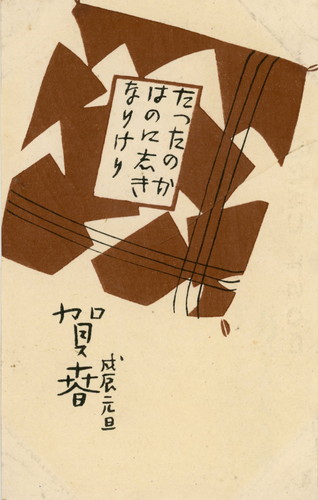 たつたのか
はのに志き
なりけり
賀春
戊辰元旦